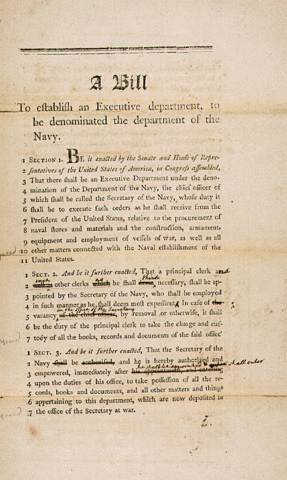 A Bill
To establish an Executive department, to
be denominated the department of the
Navy.
1 SECTION 1. BE it enacted by the Senate and House of Repre-
2 sentatives of the United States of America, in Congress assembled,
3 That there shall be an Executive Department under the deno-
4 mination of the Department of the Navy, the chief officer of
5 which shall be called the Secretary of the Navy, whose duty it
6 shall be to execute such orders as he shall receive from the
7 President of the United States, relative to the procurement of
8 naval stores and materials and the construction, armament,
9 equipment and employment of vessels of war, as well as all
10 other matters connected with the Naval establishment of the
11 United States.
1 SECT. 2. And be it further enacted, That a principal clerk and
2 other clerks which he shall necessary, shall be ap-
3 pointed by the Secretary of the Navy, who shall be employed
4 in such manner as he shall deem most expedient. In case of
in the office of the Secretary
5 vacancy of the chief officer, by removal or otherwise, it shall
6 be the duty of the principal clerk to take the charge and cus-
7 tody of all the books, records and documents of the said office
1 SECT. 3. And be it further enacted, That the Secretary of the
2 Navy shall be authorised, and he is hereby authorised and
he shall be appointed & shall enter
3 empowered, immediately after his appointment, and entering
4 upon the duties of his office, to take possession of all the re-
5 cords, books and documents, and all other matters and things
6 appertaining to this department, which are now deposited in
7 the office of the Secretary at war.